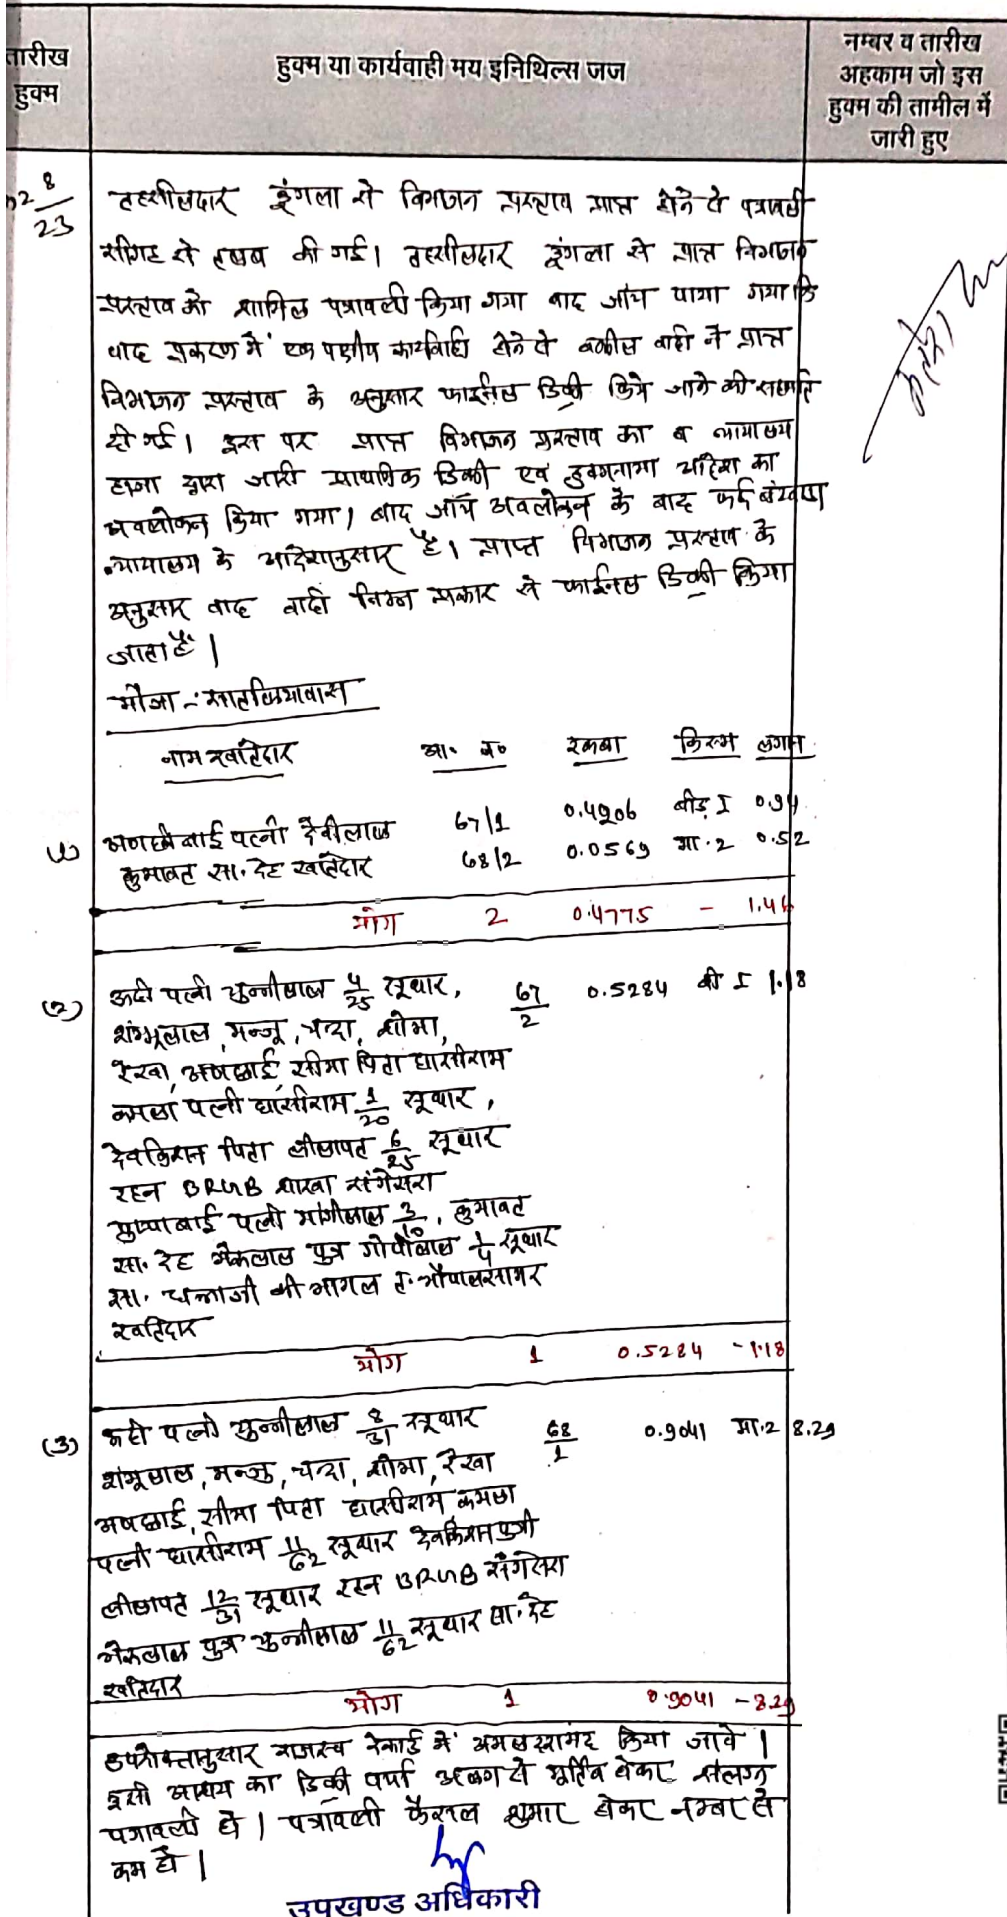 तारीख हुक्म
हुक्म या कार्यवाही मय इनिथिल्स जज
नम्बर व तारीख
अहकाम जो इस
हुक्म की तामील में
जारी हुए
8
23
तहसीलदार डूंगला से विभाजन प्रस्ताव प्राप्त होने से पत्रावली
सीगह से तलब की गई। तहसीलदार डूंगला से प्राप्त विभाजन
प्रस्ताव को शामिल पत्रावली किया गया बाद जांच पाया गया कि
वाद प्रकरण में एक पक्षीय कार्यवाही होने से वकील वादी ने प्राप्त
विभाजन प्रस्ताव के अनुसार फाईनल डिक्री किये जाने की सहमति
दी गई। इस पर प्राप्त विभाजन प्रस्ताव का व न्यायालय
हाजा द्वारा जारी प्राथमिक डिक्री एवं हुक्मनामा आदेश का
अवलोकन किया गया। बाद जाँच अवलोकन के बाद फर्द बंटवारा
न्यायालय के आदेशानुसार है। प्राप्त विभाजन प्रस्ताव के
अनुसार वाद वादी निम्न प्रकार से फाईनल डिक्री किया
जाता है।
मौजा :- सातकियावास
नाम खातेदार आ. न. रकबा किस्म लगान
(1) अणछीबाई पत्नी देवीलाल 67/1 0.4206 बीड़ I 0.94
कुमावत सा. देह खातेदार 68/2 0.0569 मा.2 0.52
योग 2 0.4775 - 1.46
(2) ऊदी पत्नी चुन्नीलाल 4/25 सुथार, 67/2 0.5284 बी I 1.18
शंम्भूलाल, मन्जू, चन्दा, शोभा,
रेखा, अणछाई, सीमा पिता घासीराम
कमला पत्नी घासीराम 1/20 सुथार,
देवकिशन पिता लीलापत 6/25 सुथार
रहन BRGB शाखा संगेसरा
पुष्पाबाई पत्नी मांगीलाल 3/10, कुमावत
सा. देह भैरूलाल पुत्र गोपीलाल 1/4 सुथार
सा. चत्राजी की भागल त. भोपालसागर
खातेदार
योग 1 0.5284 - 1.18
(3) ऊदी पत्नी चुन्नीलाल 8/31 सुथार 68/1 0.9041 मा.2 8.29
शंभूलाल, मन्जु, चन्दा, शोभा, रेखा
अणछाई, सीमा पिता घासीराम, कमला
पत्नी घासीराम 11/62 सुथार देवकिशन पुत्री
लीलापत 12/31 सुथार रहन BRGB संगेसरा
भैरूलाल पुत्र चुन्नीलाल 11/62 सुथार सा. देह
खातेदार
योग 1 0.9041 - 8.29
उपरोक्तानुसार राजस्व रेकार्ड में अमलदरामद किया जावे।
इसी आशय का डिक्री पर्चा अलग से मुर्तिब होकर संलग्न
पत्रावली हो। पत्रावली फैसल शुमार होकर नम्बर से
कम हो।
उपखण्ड अधिकारी